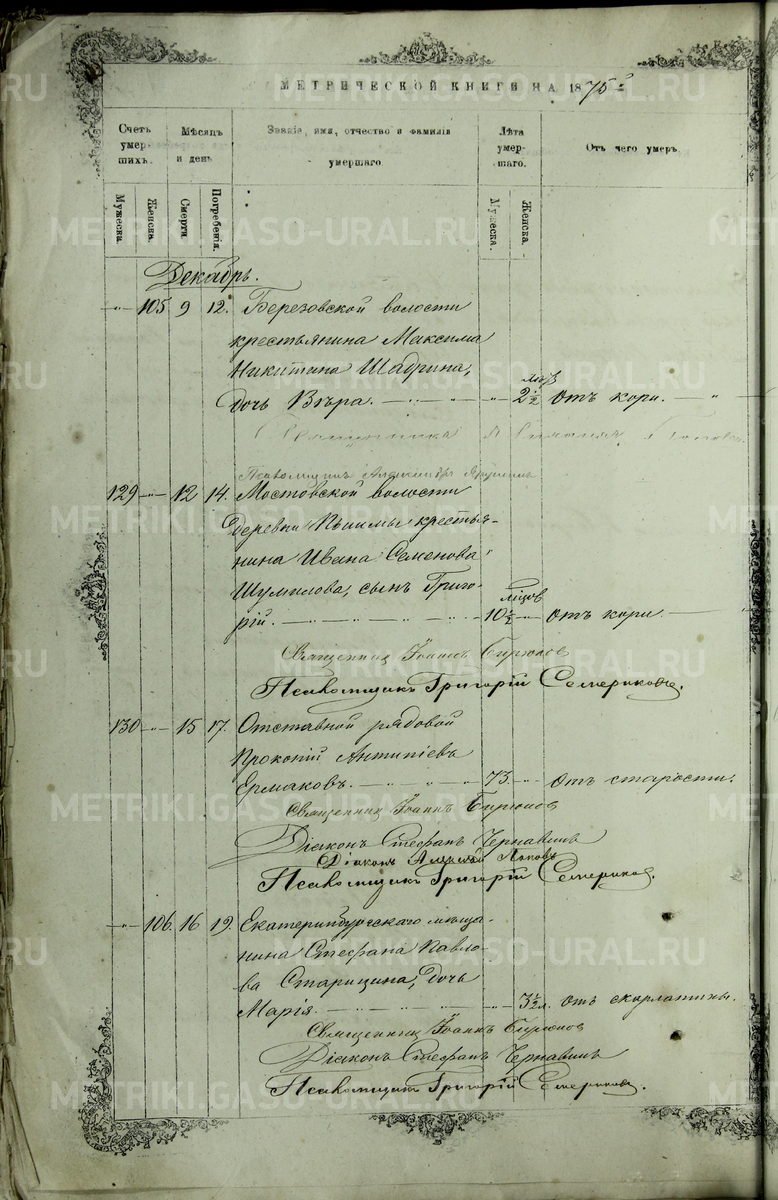 МЕТРИЧЕСКОЙ КНИГИ НА 1875 г.
Счетъ умер- шихъ.
Мѣсяцъ и день
Званіе, имя, отчество и фамилія умершаго.
Лѣта умер- шаго.
Отъ чего умеръ.
Мужеска.
Женска.
Смерти.
Погребенія.
Мужеска.
Женска.
Декабрь.
105 9 12. Березовской волости
крестьянина Максима
Никитина Шадрина,
дочь Вѣра. 2½ отъ кори.
Священника
Псаломщикъ
129 12 14. Мостовской волости
деревни Пышмы кресть-
янина Ивана Семенова
Шумилова, сынъ Григо-
рій. 10½ отъ кори.
Священникъ Іоаннъ Бирюковъ
Псаломщикъ Григорій Семериковъ.
130 15 17. Отставной рядовой
Прокопій Антипіевъ
Ермаковъ. 73. отъ старости.
Священникъ Іоаннъ Бирюковъ
Діаконъ Стефанъ Чернавинъ
Діаконъ Алексѣй Поповъ
Псаломщикъ Григорій Семериковъ.
106. 16 19. Екатеринбургскаго мѣща-
нина Стефана Павло-
ва Старицина, дочь
Марія. 3½ л. отъ скорлатины.
Священникъ Іоаннъ Бирюковъ
Діаконъ Стефанъ Чернавинъ
Псаломщикъ Григорій Семериковъ.
METRIKI.GASO-URAL.RU